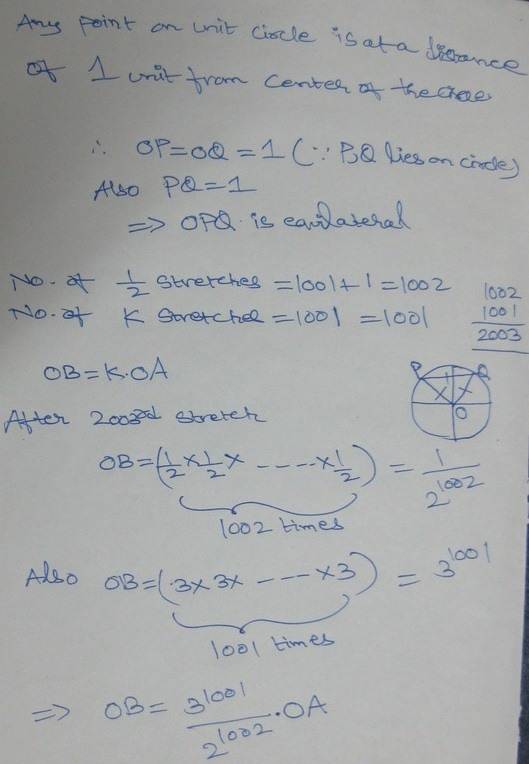 Any point on unit circle is at a distance
of 1 unit from center of the circle
∴ OP=OQ=1 (∵ P,Q lies on circle)
Also PQ=1
=> OPQ is equilateral
No. of 1/2 stretches =1001+1=1002
No. of K stretches =1001 =1001
1002
1001
2003
OB=K.OA
P Q
O
After 2003rd stretch
OB=(1/2×1/2×-----×1/2) = 1/2^1002
1002 times
Also OB=(3×3×----×3) = 3^1001
1001 times
=> OB= 3^1001/2^1002 .OA